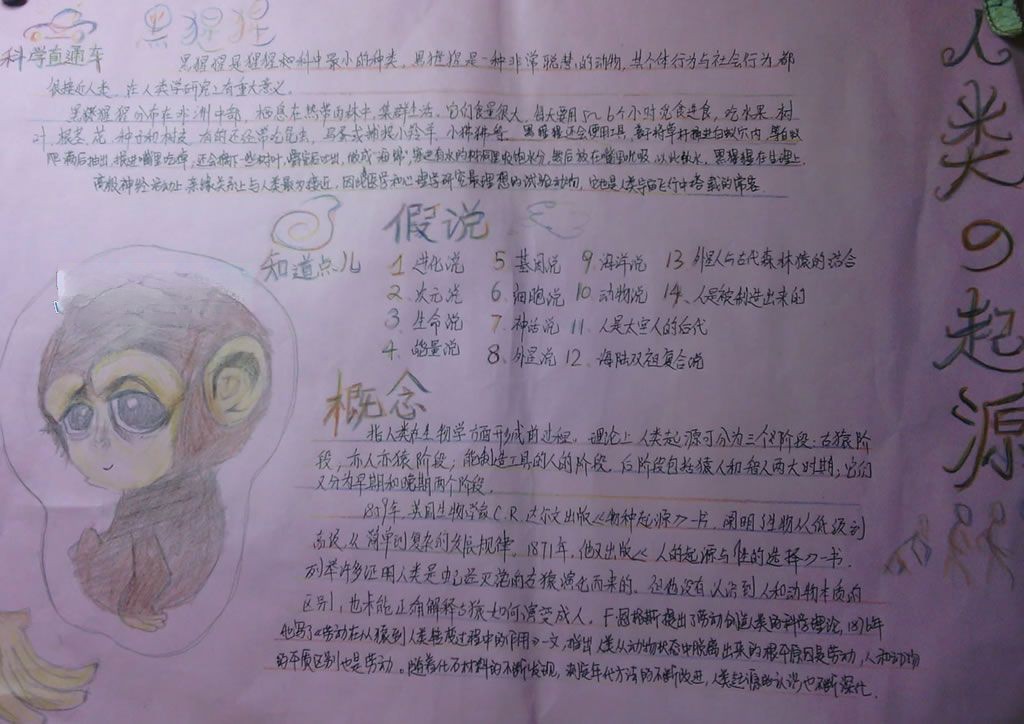 人类の起源
科学直通车
黑猩猩
黑猩猩是猩猩科中最小的种类，黑猩猩是一种非常聪慧的动物，其个体行为与社会行为都
很接近人类，在人类学研究上有重大意义。
黑猩猩分布在非洲中部，栖息在热带雨林中，集群生活。它们食量很大，每天要用5～6个小时觅食进食，吃水果、树
叶、根茎、花、种子和树皮，有的还经常吃昆虫、鸟蛋或捕捉小羚羊、小狒狒等。黑猩猩还会使用工具，
高级神经活动上、亲缘关系上与人类最为接近，因此医学和心理学研究最理想的试验动物，它也是人类宇宙飞行中搭载的常客。
假说
知道点儿
1 进化说 5 基因说 9 海洋说 13 外星人与古代森林猿的结合
2、次元说 6、细胞说 10、动物说 14、人是被制造出来的
3、生命说 7、神话说 11、人是太空人的后代
4、能量说 8、外星说 12、海陆双祖复合说
概念
指人类在生物学方面形成的过程。理论上人类起源可分为三个阶段：古猿阶
段；亦人亦猿阶段；能制造工具的人的阶段。后阶段包括猿人和智人两大时期，它们
又分为早期和晚期两个阶段。
1859年，英国生物学家C.R.达尔文出版《物种起源》一书，阐明了生物从低级到
高级，从简单到复杂的发展规律。1871年，他又出版《人的起源与性的选择》一书，
列举许多证明人类是由已经灭绝的古猿演化而来的。但他没有认识到人和动物本质的
区别，也未能正确解释古猿如何演变成人。F·恩格斯提出了劳动创造人类的科学理论，1876年
他写了《劳动在从猿到人类转变过程中的作用》一文，指出人类从动物状态中脱离出来的根本原因是劳动，人和动物
的本质区别也是劳动。随着化石材料的不断发现，测定年代方法的不断改进，人类起源的认识也不断深化。